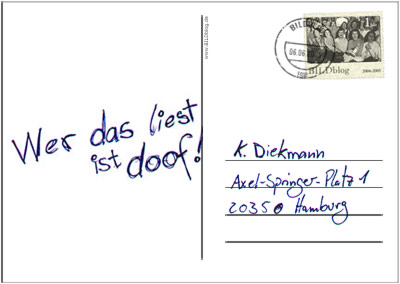 Wer das liest
ist doof!
www.BILDblog.de
BILD
06.06.
1
BILDblog
2004-2005
K. Diekmann
Axel-Springer-Platz 1
20350 Hamburg